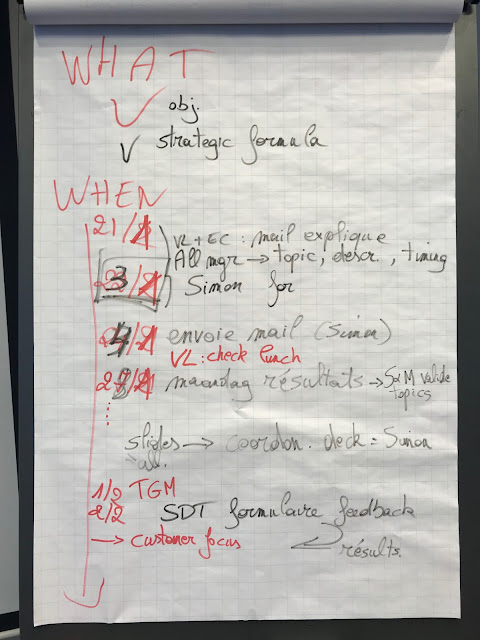 WHAT
obj.
strategic formula
WHEN
21/1
VL + EC : mail explique
All mgr → topic, descr., timing
3
Simon for
envoie mail (Simon)
VL: check lunch
maandag résultats → S2M valide
topics
slides → coordon. deck = Simon
all.
1/2 TGM
2/2 SDT formulaire feedback
→ customer focus
résults.